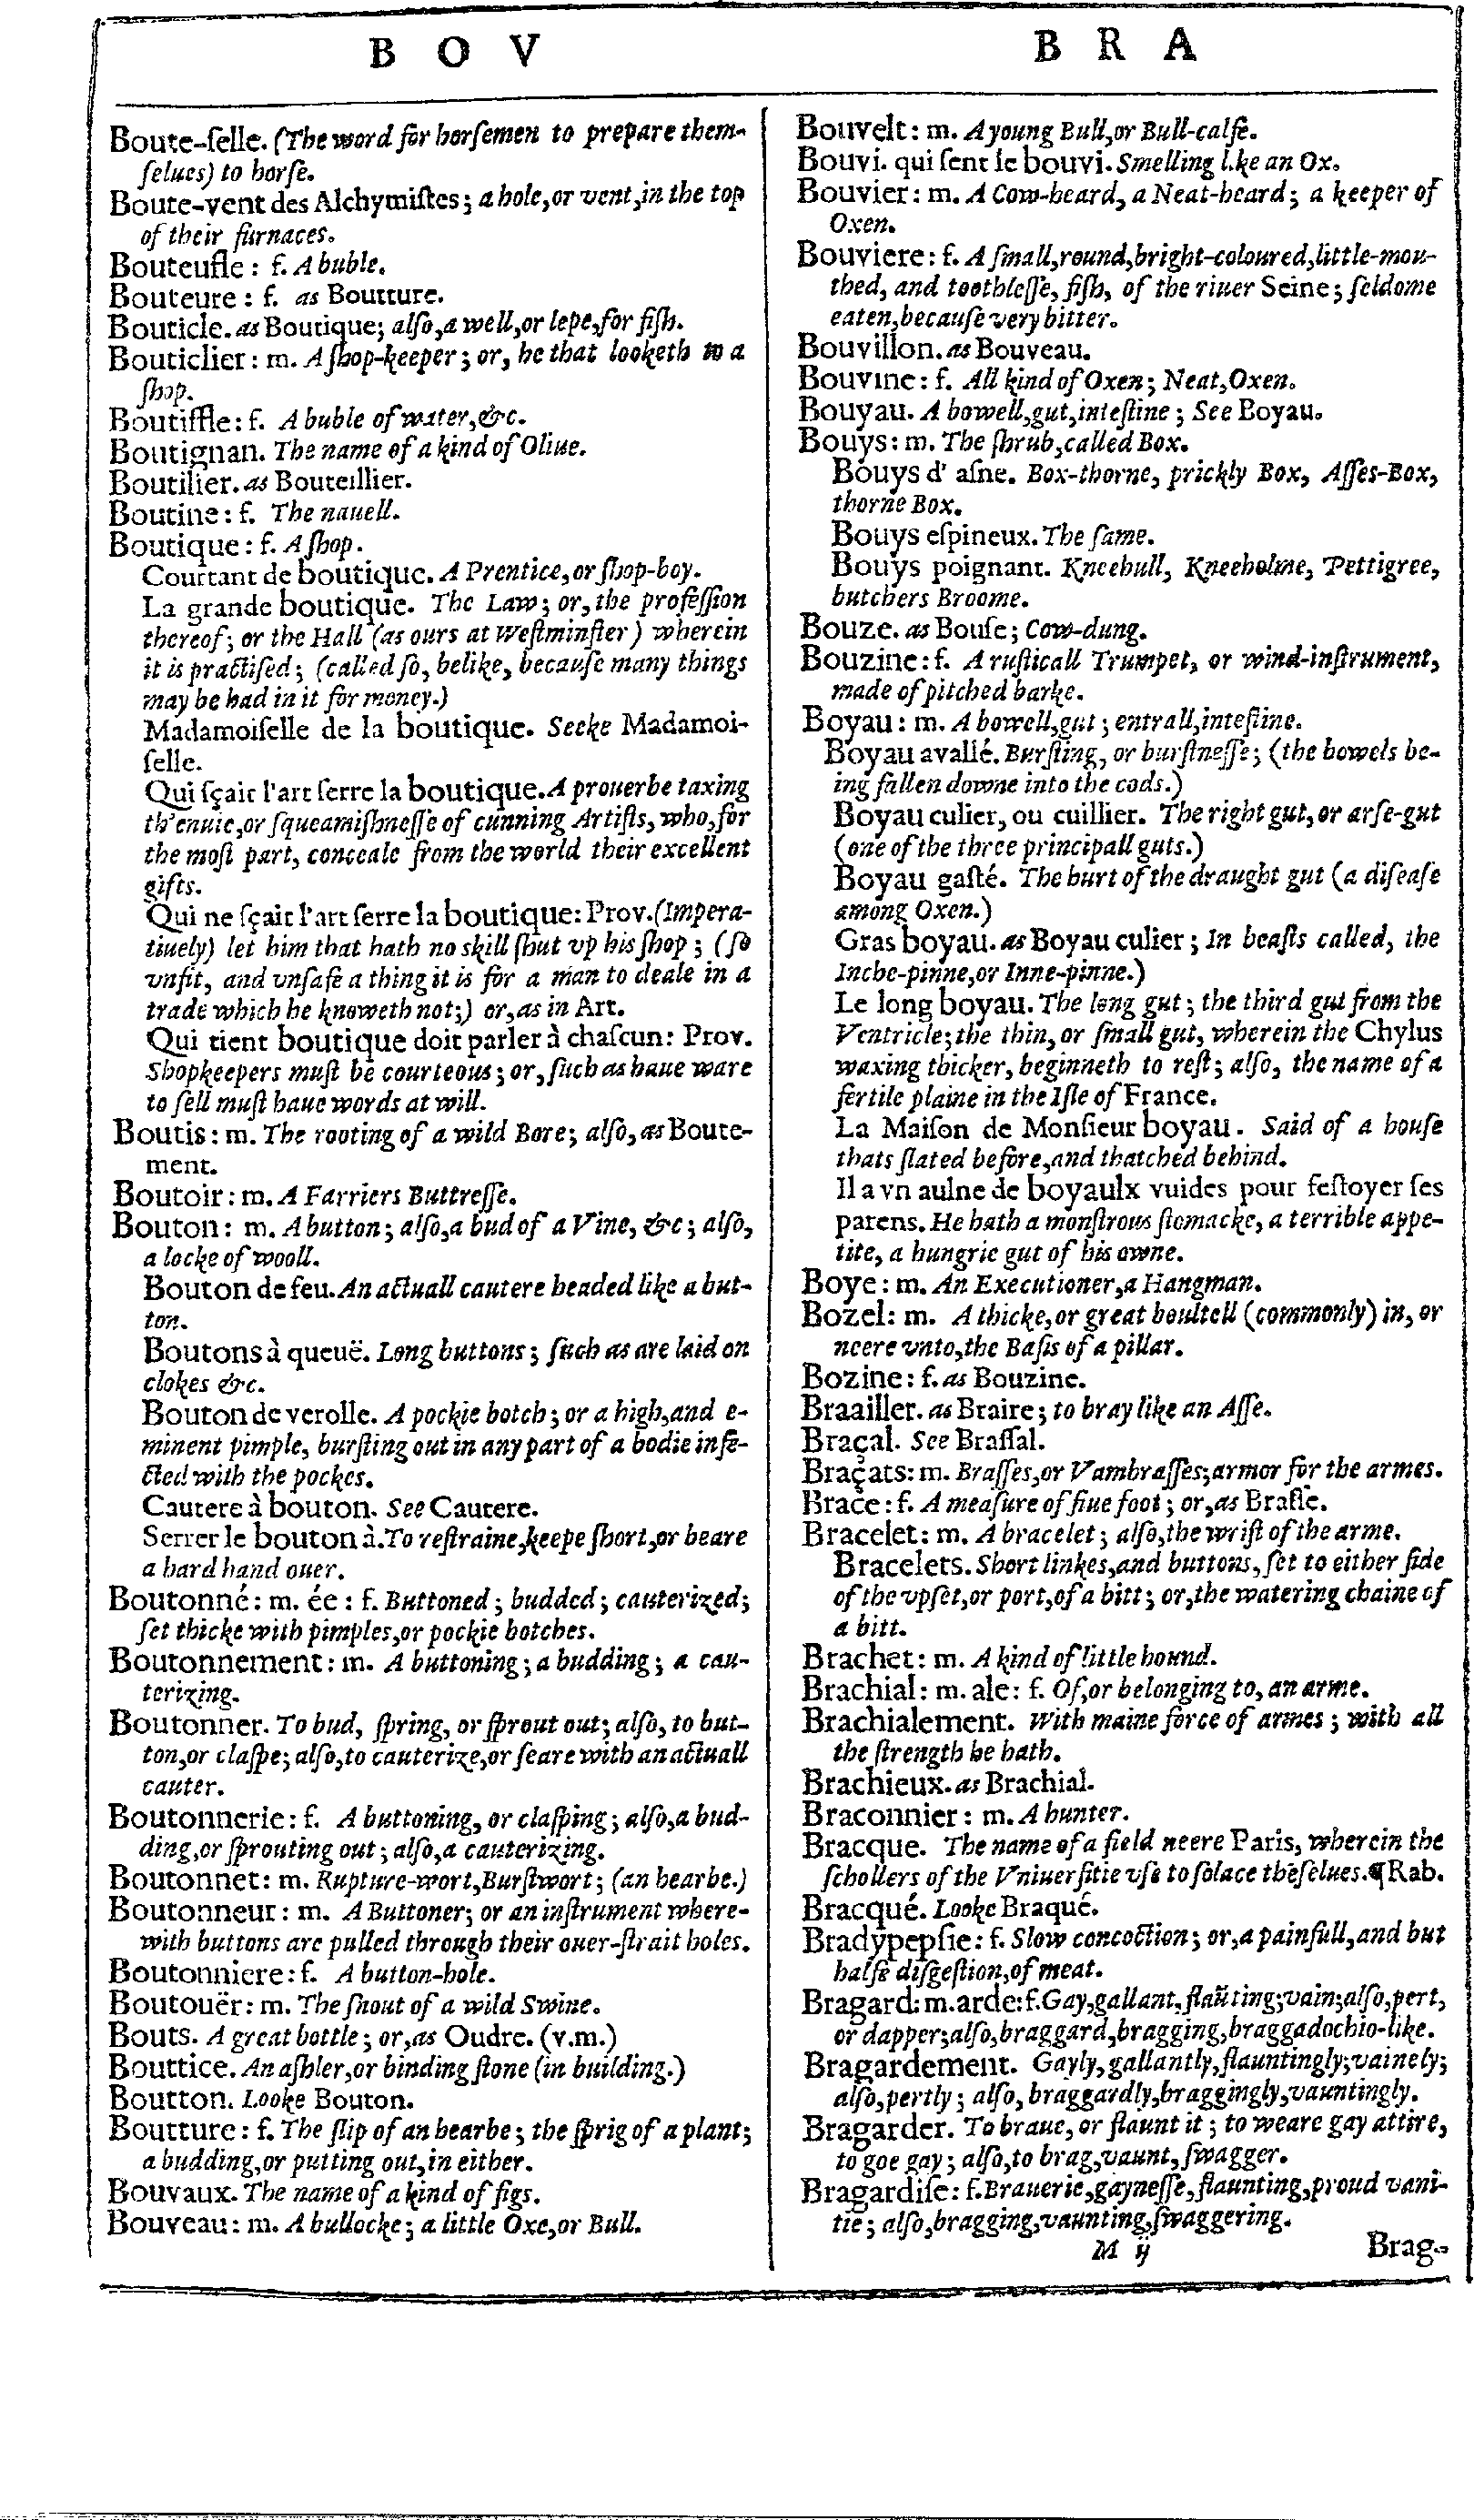 B O V
B R A
Boute-ſelle. (The word for horſemen to prepare them-
ſelues) to horſe.
Boute-vent des Alchymiſtes; a hole, or vent, in the top
of their furnaces.
Bouteufle: f. A buble.
Bouteure: f. as Boutture.
Bouticle. as Boutique; alſo, a well, or lepe, for fiſh.
Bouticlier: m. A ſhop-keeper; or, he that looketh to a
ſhop.
Boutiffle: f. A buble of water, &c.
Boutignan. The name of a kind of Oliue.
Boutilier. as Bouteillier.
Boutine: f. The nauell.
Boutique: f. A ſhop.
Courtant de boutique. A Prentice, or ſhop-boy.
La grande boutique. The Law; or, the profeſſion
thereof; or the Hall (as ours at Weſtminſter) wherein
it is practiſed; (called ſo, belike, becauſe many things
may be had in it for money.)
Madamoiſelle de la boutique. Seeke Madamoi-
ſelle.
Qui ſçait l'art ſerre la boutique. A prouerbe taxing
th'enuie, or ſqueamiſhneſſe of cunning Artiſts, who, for
the moſt part, conceale from the world their excellent
gifts.
Qui ne ſçait l'art ſerre la boutique: Prov. (Impera-
tiuely) let him that hath no skill ſhut vp his ſhop; (ſo
vnfit, and vnſafe a thing it is for a man to deale in a
trade which he knoweth not;) or, as in Art.
Qui tient boutique doit parler à chaſcun: Prov.
Shopkeepers muſt be courteous; or, ſuch as haue ware
to ſell muſt haue words at will.
Boutis: m. The rooting of a wild Bore; alſo, as Boute-
ment.
Boutoir: m. A Farriers Buttreſſe.
Bouton: m. A button; alſo, a bud of a Vine, &c; alſo,
a locke of wooll.
Bouton de feu. An actuall cautere headed like a but-
ton.
Boutons à queuë. Long buttons; ſuch as are laid on
clokes &c.
Bouton de verolle. A pockie botch; or a high, and e-
minent pimple, burſting out in any part of a bodie infe-
cted with the pockes.
Cautere à bouton. See Cautere.
Serrer le bouton à. To reſtraine, keepe ſhort, or beare
a hard hand ouer.
Boutonné: m. ée: f. Buttoned; budded; cauterized;
ſet thicke with pimples, or pockie botches.
Boutonnement: m. A buttoning; a budding; a cau-
terizing.
Boutonner. To bud, ſpring, or ſprout out; alſo, to but-
ton, or claſpe; alſo, to cauterize, or ſeare with an actuall
cauter.
Boutonnerie: f. A buttoning, or claſping; alſo, a bud-
ding, or ſprouting out; alſo, a cauterizing.
Boutonnet: m. Rupture-wort, Burſtwort; (an hearbe.)
Boutonneur: m. A Buttoner; or an inſtrument where-
with buttons are pulled through their ouer-ſtrait holes.
Boutonniere: f. A button-hole.
Boutouër: m. The ſnout of a wild Swine.
Bouts. A great bottle; or, as Oudre. (v.m.)
Bouttice. An aſhler, or binding ſtone (in building.)
Boutton. Looke Bouton.
Boutture: f. The ſlip of an hearbe; the ſprig of a plant;
a budding, or putting out, in either.
Bouvaux. The name of a kind of figs.
Bouveau: m. A bullocke; a little Oxe, or Bull.
Bouvelt: m. A young Bull, or Bull-calfe.
Bouvi. qui ſent le bouvi. Smelling like an Ox.
Bouvier: m. A Cow-heard, a Neat-heard; a keeper of
Oxen.
Bouviere: f. A ſmall, round, bright-coloured, little-mou-
thed, and toothleſſe, fiſh, of the riuer Seine; ſeldome
eaten, becauſe very bitter.
Bouvillon. as Bouveau.
Bouvine: f. All kind of Oxen; Neat, Oxen.
Bouyau. A bowell, gut, inteſtine; See Boyau.
Bouys: m. The ſhrub, called Box.
Bouys d' aſne. Box-thorne, prickly Box, Aſſes-Box,
thorne Box.
Bouys eſpineux. The ſame.
Bouys poignant. Kneebull, Kneeholme, Pettigree,
butchers Broome.
Bouze. as Bouſe; Cow-dung.
Bouzine: f. A ruſticall Trumpet, or wind-inſtrument,
made of pitched barke.
Boyau: m. A bowell, gut; entrall, inteſtine.
Boyau avallé. Burſting, or burſtneſſe; (the bowels be-
ing fallen downe into the cods.)
Boyau culier, ou cuillier. The right gut, or arſe-gut
(one of the three principall guts.)
Boyau gaſté. The hurt of the draught gut (a diſeaſe
among Oxen.)
Gras boyau. as Boyau culier; In beaſts called, the
Inche-pinne, or Inne-pinne.)
Le long boyau. The long gut; the third gut from the
Ventricle; the thin, or ſmall gut, wherein the Chylus
waxing thicker, beginneth to reſt; alſo, the name of a
fertile plaine in the Iſle of France.
La Maiſon de Monſieur boyau. Said of a houſe
thats ſlated before, and thatched behind.
Il a vn aulne de boyaulx vuides pour feſtoyer ſes
parens. He hath a monſtrous ſtomacke, a terrible appe-
tite, a hungrie gut of his owne.
Boye: m. An Executioner, a Hangman.
Bozel: m. A thicke, or great boultell (commonly) in, or
neere vnto, the Baſis of a pillar.
Bozine: f. as Bouzine.
Braailler. as Braire; to bray like an Aſſe.
Braçal. See Braſſal.
Braçats: m. Braſſes, or Vambraſſes; armor for the armes.
Brace: f. A meaſure of fiue foot; or, as Braſſe.
Bracelet: m. A bracelet; alſo, the wriſt of the arme.
Bracelets. Short linkes, and buttons, ſet to either ſide
of the vpſet, or port, of a bitt; or, the watering chaine of
a bitt.
Brachet: m. A kind of little hound.
Brachial: m. ale: f. Of, or belonging to, an arme.
Brachialement. With maine force of armes; with all
the ſtrength he hath.
Brachieux. as Brachial.
Braconnier: m. A hunter.
Bracque. The name of a field neere Paris, wherein the
ſchollers of the Vniuerſitie vſe to ſolace thēſelues. ¶Rab.
Bracqué. Looke Braqué.
Bradypepſie: f. Slow concoction; or, a painfull, and but
halfe diſgeſtion, of meat.
Bragard: m. arde: f. Gay, gallant, flaūting; vain; alſo, pert,
or dapper; alſo, braggard, bragging, braggadochio-like.
Bragardement. Gayly, gallantly, flauntingly; vainely;
alſo, pertly; alſo, braggardly, braggingly, vauntingly.
Bragarder. To braue, or flaunt it; to weare gay attire,
to goe gay; alſo, to brag, vaunt, ſwagger.
Bragardiſe: f. Brauerie, gayneſſe, flaunting, proud vani-
tie; alſo, bragging, vaunting, ſwaggering.
M ij
Brag-